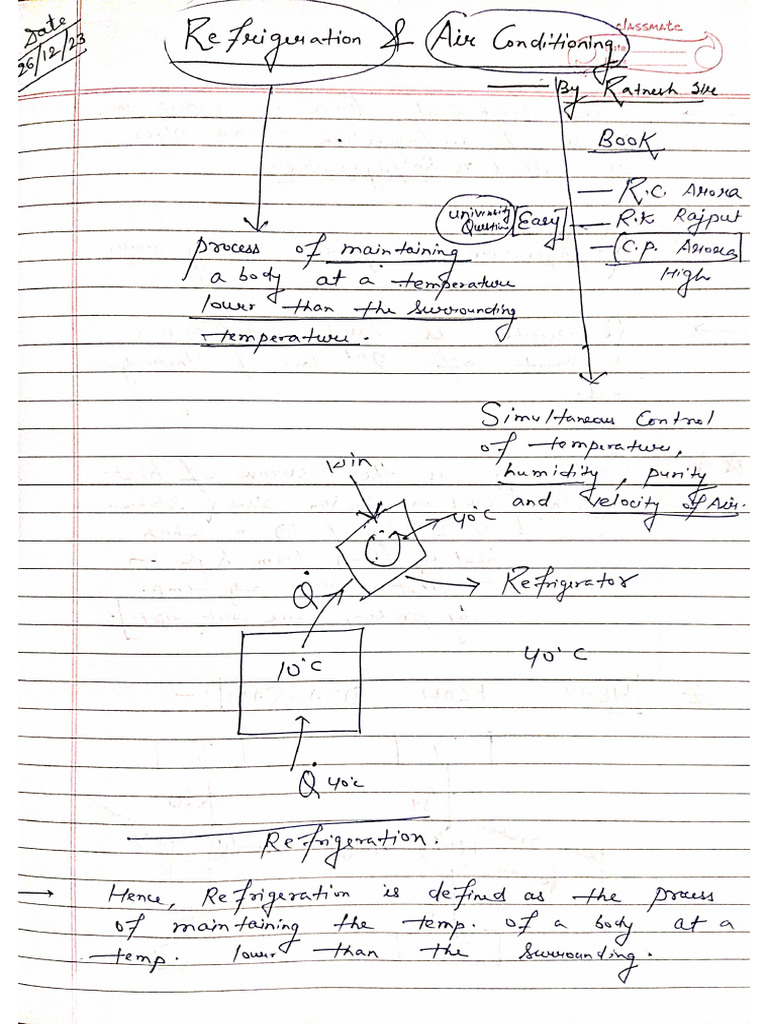 Date
26/12/23
classmate
Refrigeration & Air Conditioning
By Ratnesh Sir
Book
— R.C. Arora
University Questions [Easy] — R.K Rajput
— C.P. Arora
High
process of maintaining
a body at a temperature
lower than the surrounding
temperature.
Simultaneous Control
of temperature,
humidity, purity
and velocity of Air.
Win.
40°C
Q̇
Refrigerator
10°C
40°C
Q̇ 40°C
Refrigeration.
→ Hence, Refrigeration is defined as the process
of maintaining the temp. of a body at a
temp. lower than the surrounding.